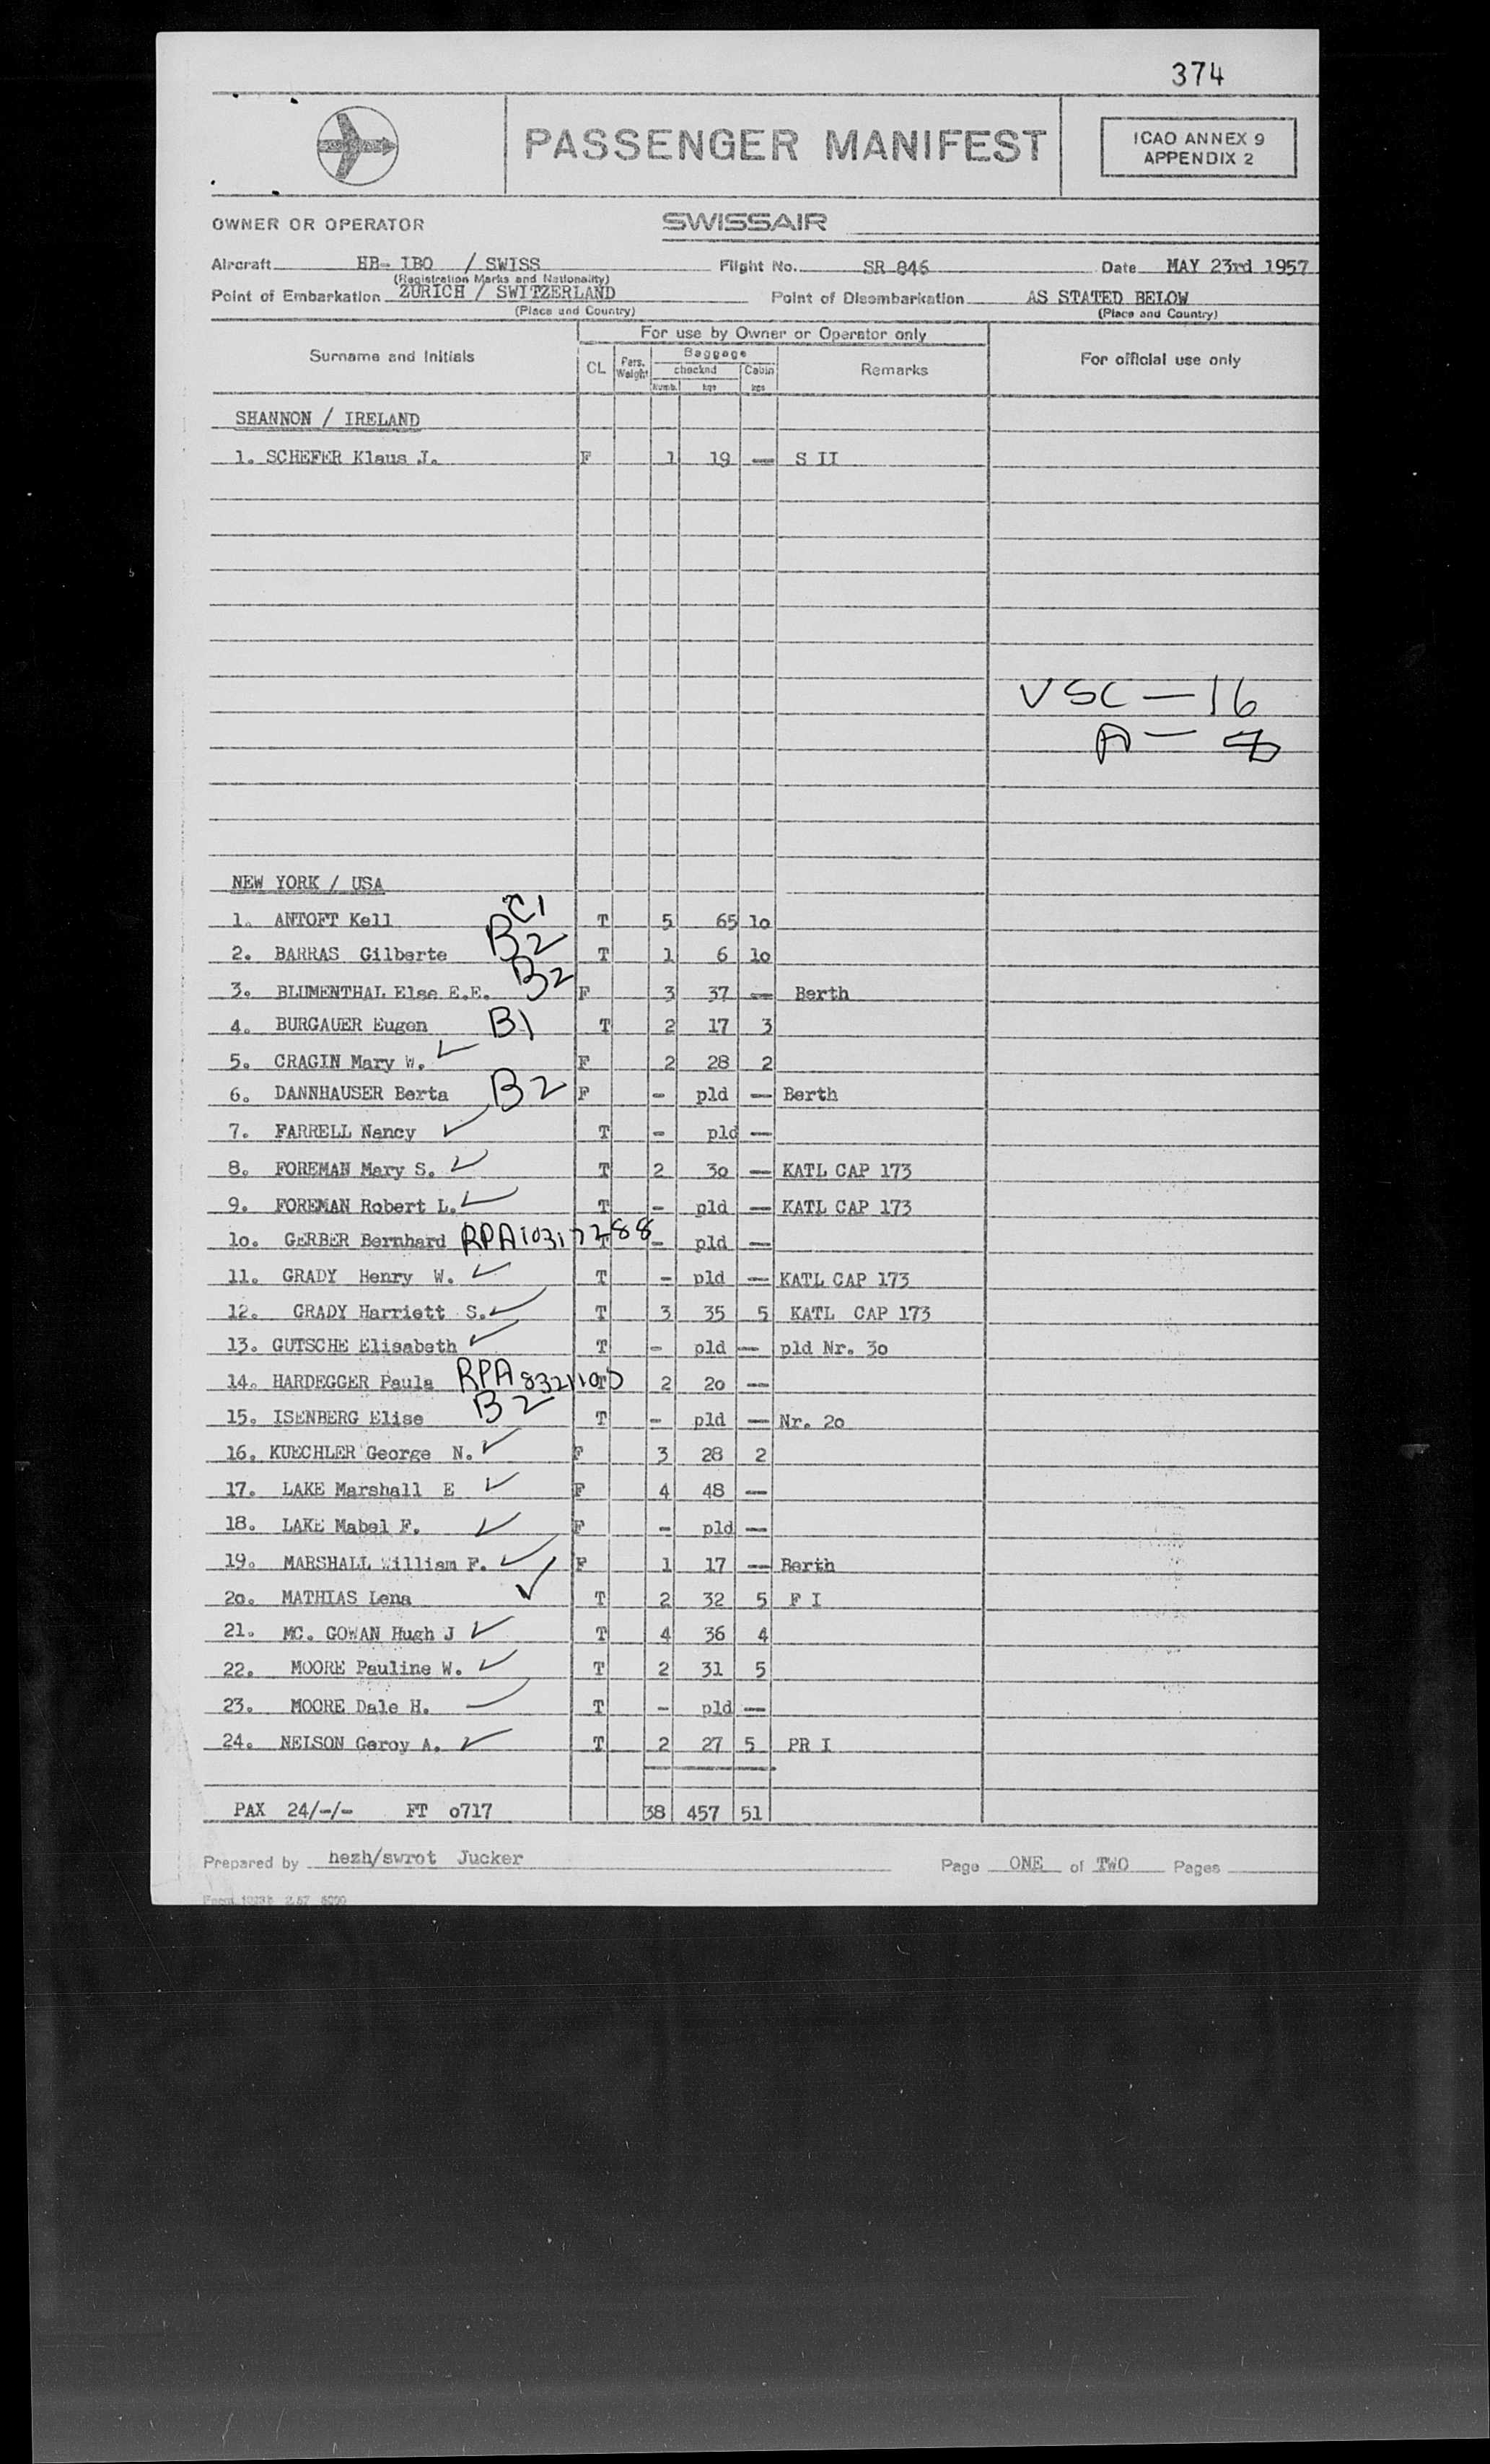 374
PASSENGER MANIFEST
ICAO ANNEX 9
APPENDIX 2
OWNER OR OPERATOR SWISSAIR
Aircraft HB- IBO / SWISS Flight No. SR 846 Date MAY 23rd 1957
(Registration Marks and Nationality)
Point of Embarkation ZURICH / SWITZERLAND Point of Disembarkation AS STATED BELOW
(Place and Country) (Place and Country)
For use by Owner or Operator only
Surname and Initials CL Pers. Weight Baggage checked Numb. kgs Cabin kgs Remarks For official use only
SHANNON / IRELAND
1. SCHEFER Klaus J. F 1 19 — S II
VSC — 16
A — 8
NEW YORK / USA
1. ANTOFT Kell C1 T 5 65 1o
2. BARRAS Gilberte B2 T 1 6 1o
3. BLUMENTHAL Else E.E. B2 F 3 37 — Berth
4. BURGAUER Eugen B1 T 2 17 3
5. CRAGIN Mary W. ✓ F 2 28 2
6. DANNHAUSER Berta B2 F - pld — Berth
7. FARRELL Nancy ✓ T - pld —
8. FOREMAN Mary S. ✓ T 2 3o — KATL CAP 173
9. FOREMAN Robert L. ✓ T - pld — KATL CAP 173
1o. GERBER Bernhard RPA10317288 T - pld —
11. GRADY Henry W. ✓ T - pld — KATL CAP 173
12. GRADY Harriett S. ✓ T 3 35 5 KATL CAP 173
13. GUTSCHE Elisabeth ✓ T - pld — pld Nr. 3o
14. HARDEGGER Paula RPA T 2 2o —
15. ISENBERG Elise B2 T - pld — Nr. 2o
16. KUECHLER George N. ✓ F 3 28 2
17. LAKE Marshall E ✓ F 4 48 —
18. LAKE Mabel F. ✓ F - pld —
19. MARSHALL William F. ✓ F 1 17 — Berth
2o. MATHIAS Lena ✓ T 2 32 5 F I
21. MC. GOWAN Hugh J ✓ T 4 36 4
22. MOORE Pauline W. ✓ T 2 31 5
23. MOORE Dale H. ✓ T - pld —
24. NELSON Geroy A. ✓ T 2 27 5 PR I
PAX 24/-/- FT o717 38 457 51
Prepared by hezh/swrot Jucker Page ONE of TWO Pages